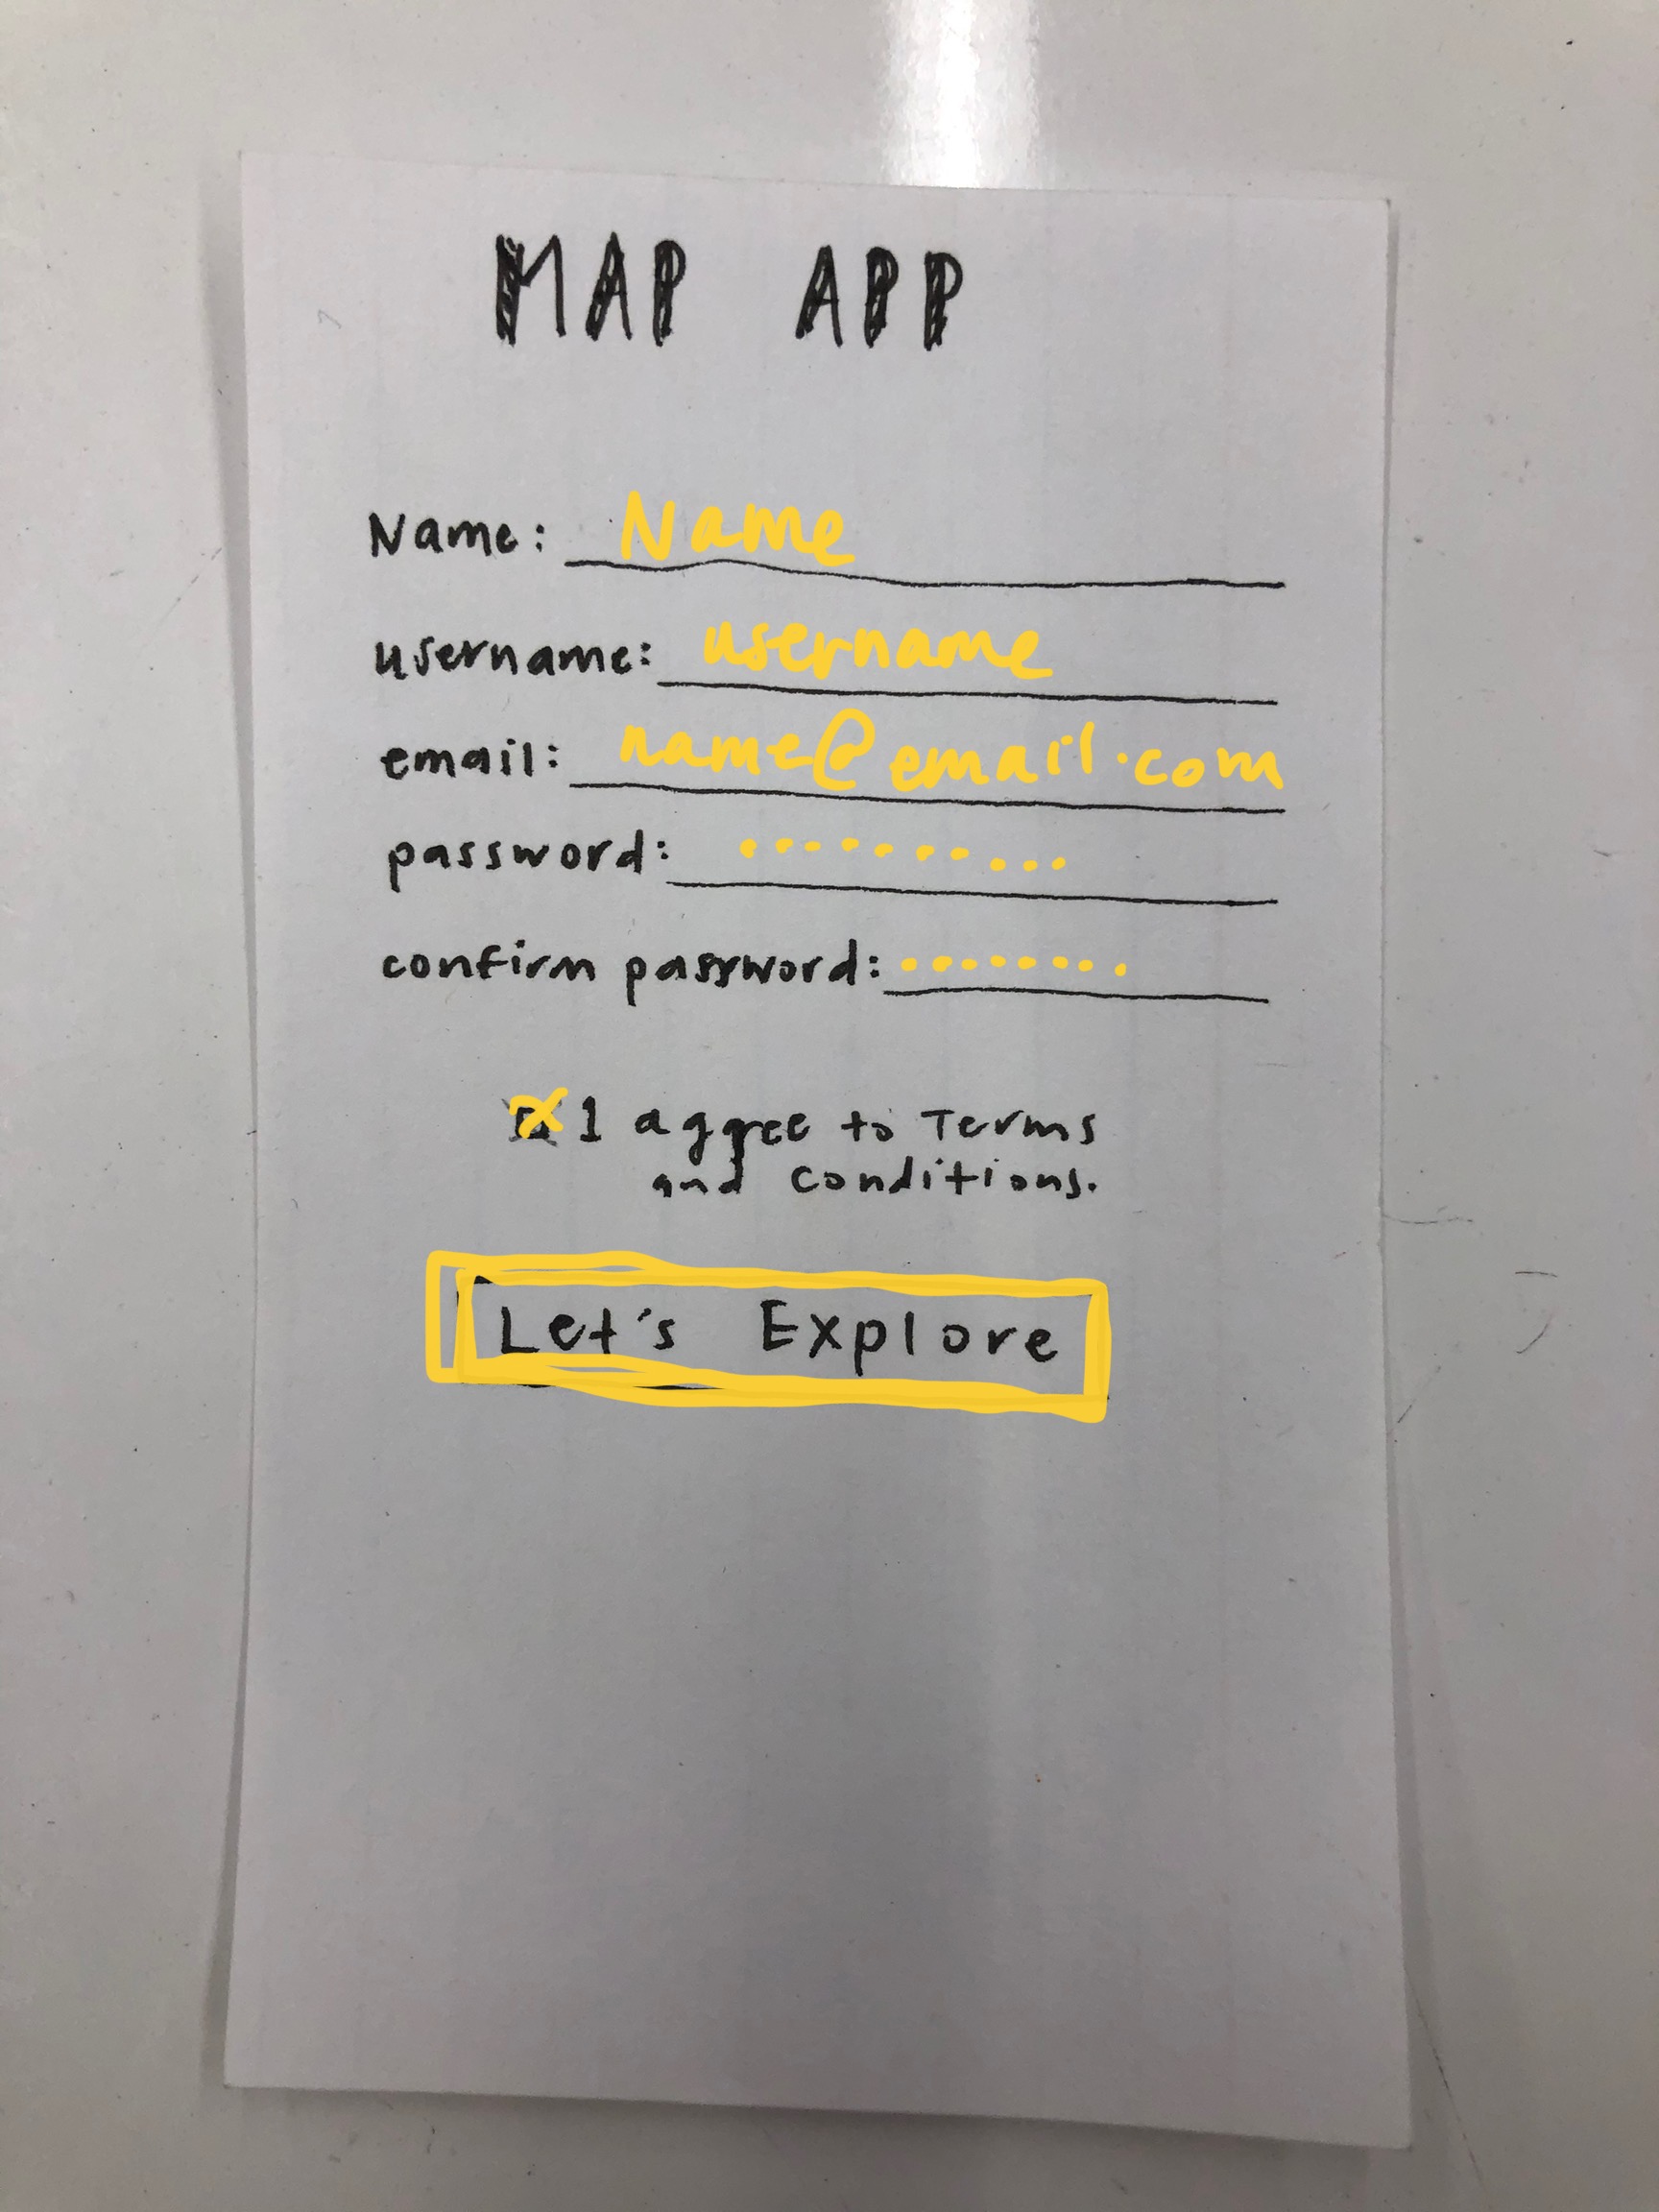 MAP APP
Name: Name
username: username
email: name@email.com
password: ··········
confirm password: ········
I aggree to Terms
and conditions.
Let's Explore